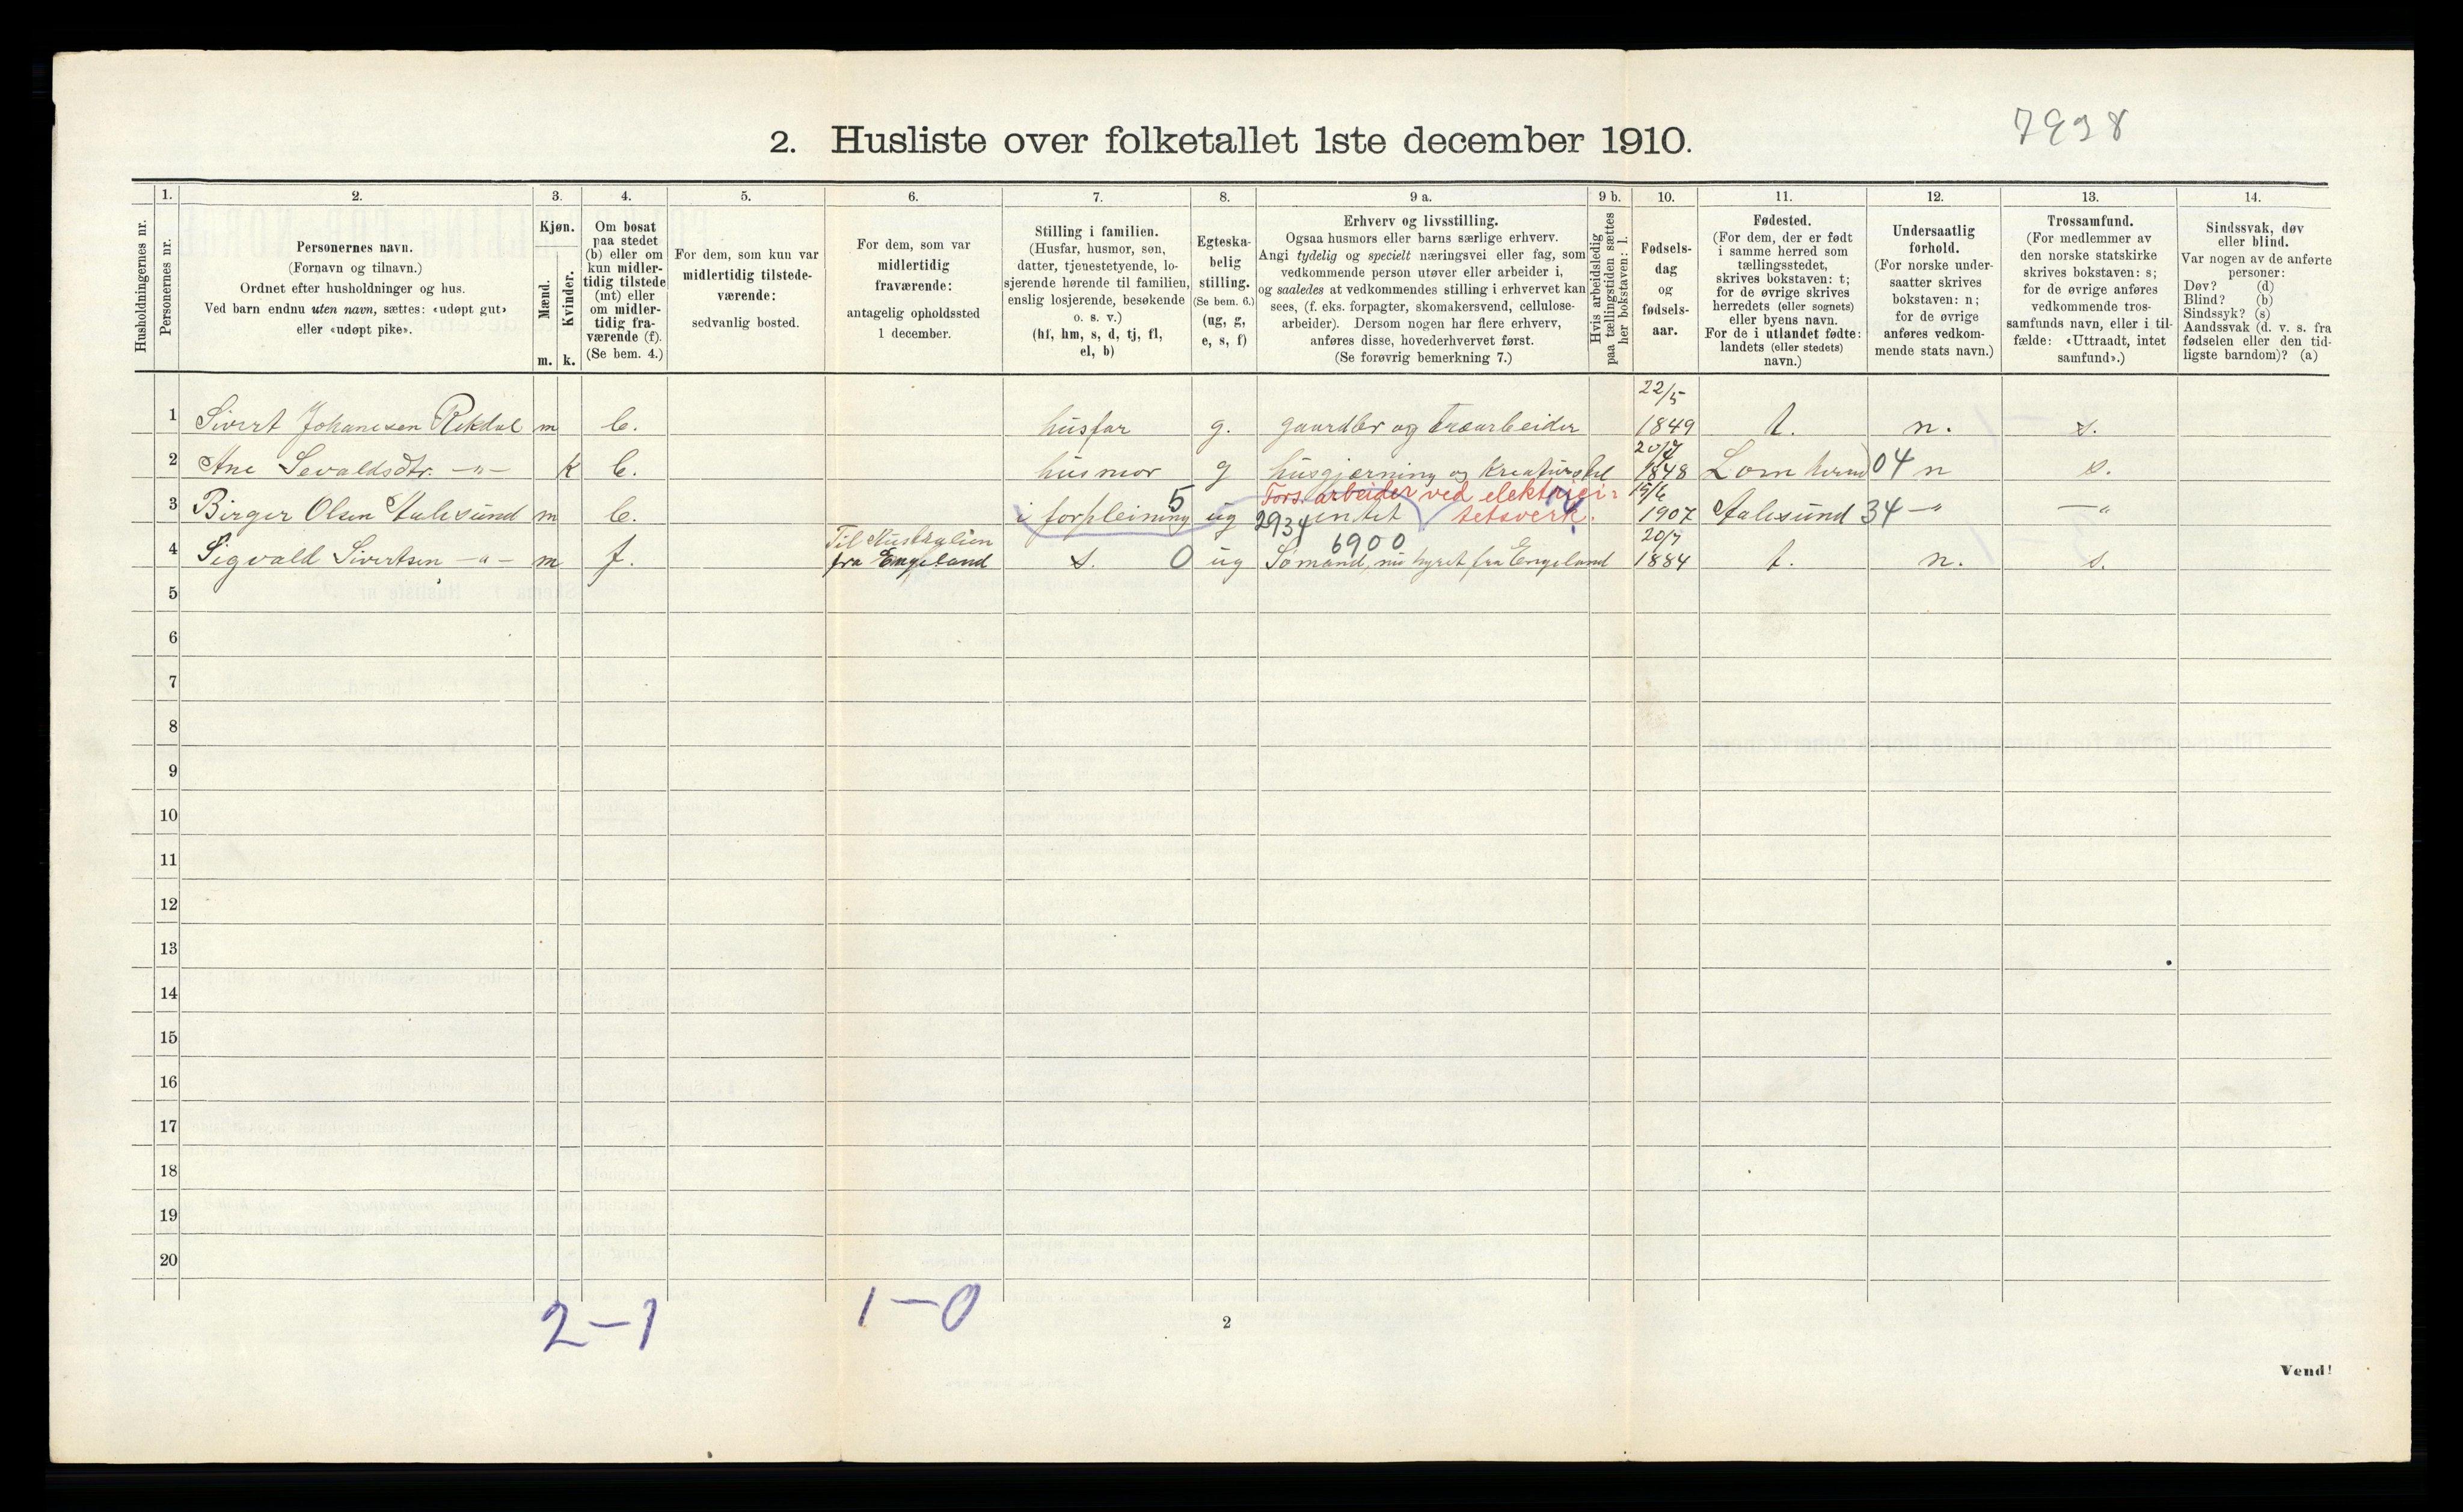 7938
2. Husliste over folketallet 1ste december 1910.
Husholdningernes nr.
1.
Personernes nr.
2.
Personernes navn.
(Fornavn og tilnavn.)
Ordnet efter husholdninger og hus.
Ved barn endnu uten navn, sættes: «udøpt gut»
eller «udøpt pike».
3.
Kjøn.
Mænd.
Kvinder.
m. k.
4.
Om bosat
paa stedet
(b) eller om
kun midler-
tidig tilstede
(mt) eller
om midler-
tidig fra-
værende (f).
(Se bem. 4.)
5.
For dem, som kun var
midlertidig tilstede-
værende:
sedvanlig bosted.
6.
For dem, som var
midlertidig
fraværende:
antagelig opholdssted
1 december.
7.
Stilling i familien.
(Husfar, husmor, søn,
datter, tjenestetyende, lo-
sjerende hørende til familien,
enslig losjerende, besøkende
o. s. v.)
(hf, hm, s, d, tj, fl,
el, b)
8.
Egteska-
belig
stilling.
(Se bem. 6.)
(ug, g,
e, s, f)
9 a.
Erhverv og livsstilling.
Ogsaa husmors eller barns særlige erhverv.
Angi tydelig og specielt næringsvei eller fag, som
vedkommende person utøver eller arbeider i,
og saaledes at vedkommendes stilling i erhvervet kan
sees, (f. eks. forpagter, skomakersvend, cellulose-
arbeider). Dersom nogen har flere erhverv,
anføres disse, hovederhvervet først.
(Se forøvrig bemerkning 7.)
9 b.
Hvis arbeidsledig
paa tællingstiden sættes
her bokstaven: l.
10.
Fødsels-
dag
og
fødsels-
aar.
11.
Fødested.
(For dem, der er født
i samme herred som
tællingsstedet,
skrives bokstaven: t;
for de øvrige skrives
herredets (eller sognets)
eller byens navn.
For de i utlandet fødte:
landets (eller stedets)
navn.)
12.
Undersaatlig
forhold.
(For norske under-
saatter skrives
bokstaven: n;
for de øvrige
anføres vedkom-
mende stats navn.)
13.
Trossamfund.
(For medlemmer av
den norske statskirke
skrives bokstaven: s;
for de øvrige anføres
vedkommende tros-
samfunds navn, eller i til-
fælde: «Uttraadt, intet
samfund».)
14.
Sindssvak, døv
eller blind.
Var nogen av de anførte
personer:
Døv? (d)
Blind? (b)
Sindssyk? (s)
Aandssvak (d. v. s. fra
fødselen eller den tid-
ligste barndom)? (a)
22/5
1 Sivert Johanesen Rekdal m b. husfar g. gaardbr og Træarbeider 1849 t. n. s.
2 Ane Sevaldsdtr. -"- k b. husmor g husgjerning og Kreaturstel 1848 Lom 04 n s.
Fors. arbeider ved elektrici- 15/6
3 Birger Olsen Aalesund m b. i forpleining 5 ug 2934 intet tetsverk. 1907 Aalesund 34 -" -"
Til Australien 6900 20/7
4 Sigvald Sivertsen -"- m f. fra Engeland s. 0 ug Sømand, nu hyret fra Engeland 1884 t. n. s.
5
6
7
8
9
10
11
12
13
14
15
16
17
18
19
20
2-1 1-0
2
Vend!